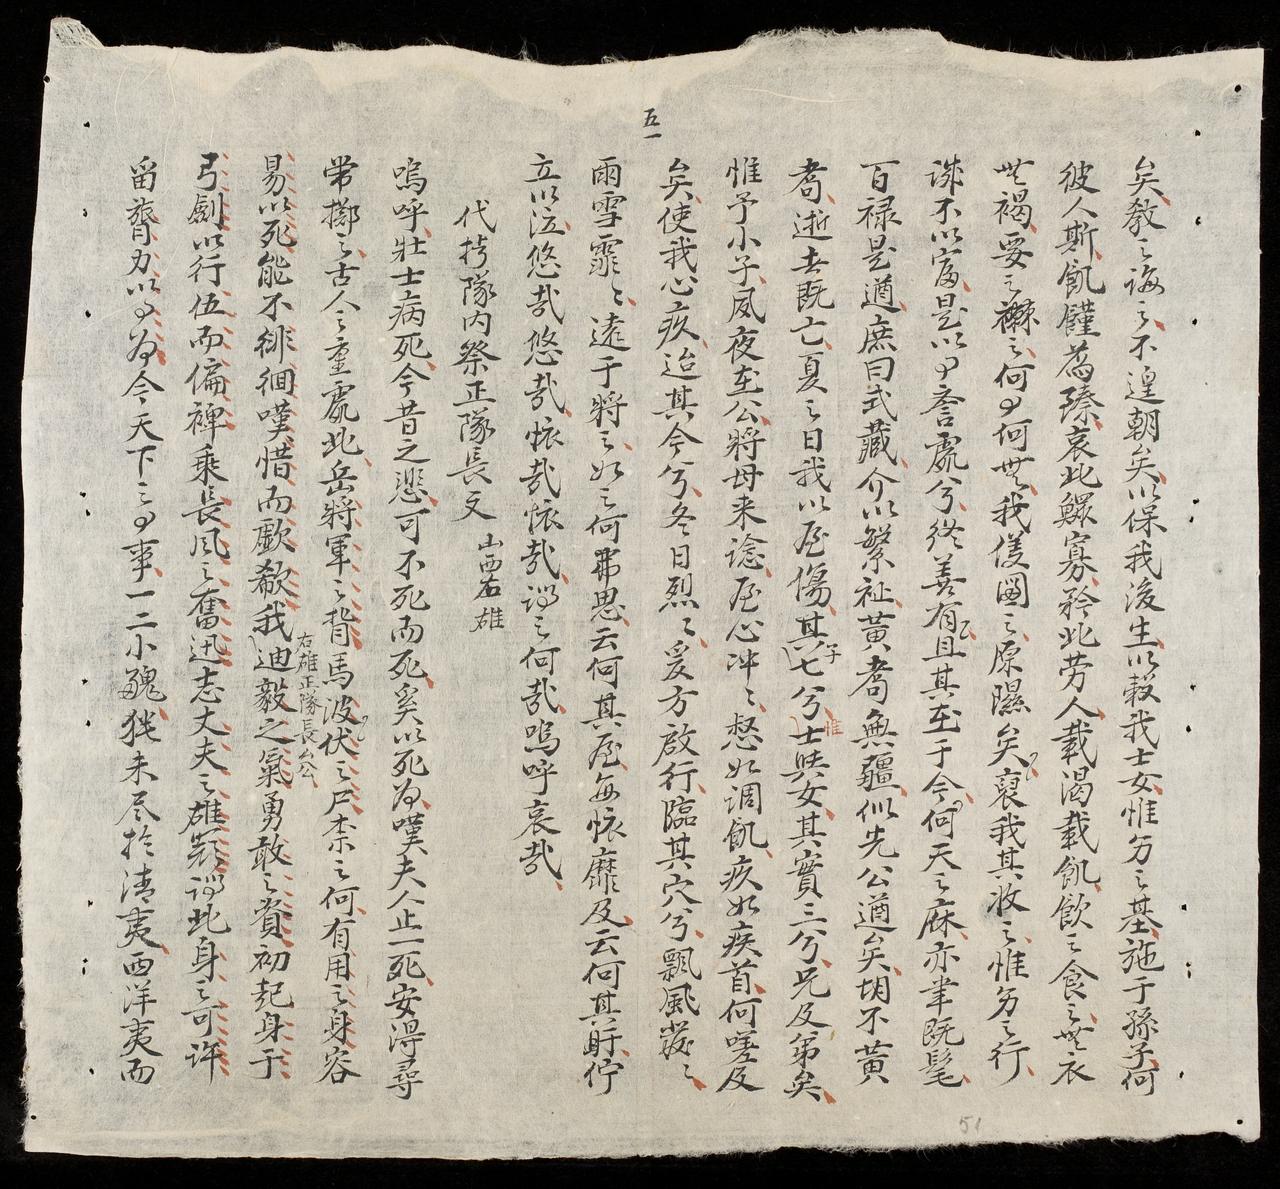 五一
矣教之誨之不遑朝矣以保我後生以穀我士女惟勞之基施于孫子何
彼人斯飢饉荐臻哀此鰥寡矜此劳人載渴載飢飲之食之無衣
無褐要之襋之何有何無我僾國之原隰矣裒我其收之惟勞之行
誅不以富是以有譽處兮終善有且其在于今何天之庥亦聿既髦
百禄是遒庶曰式臧介以繁祉黃耇無疆似先公遒矣胡不黃
耇逝去既亡夏之日我以屋傷其七兮士與女其實三兮兄及第矣
子
惟
惟予小子夙夜在公將母来諗屋心冲々惄如調飢疚如疾首何嗟及
矣使我心疚迨其今兮冬日烈々爰方啟行臨其穴兮飄風發々
雨雪霏々遠于將之如之何弗思云何其屋每懷靡及云何其盱佇
立以泣悠哉悠哉懷哉懷哉謂之何哉嗚呼哀哉
代 隊内祭正隊長文 山西右雄
嗚呼壯士病死今昔之悲可不死而死奚以死為嘆夫人止一死安得尋
常擲之古人之重處此岳將軍之背馬波伏之尸柰之何有用之身容
易以死能不徘徊嘆惜而歔欷我迪毅之氣勇敢之資初起身于
右雄正隊長公
弓劍以行伍而偏裨乘長風之奮迅志丈夫之雄 謂此身之可許
留膂力以有為今天下之有事一二小醜 未尽於清夷西洋夷而
51